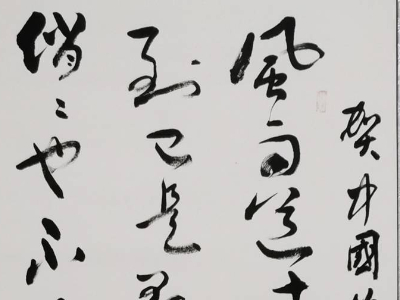 贺中國
風雨送
到已是
俏〻也不